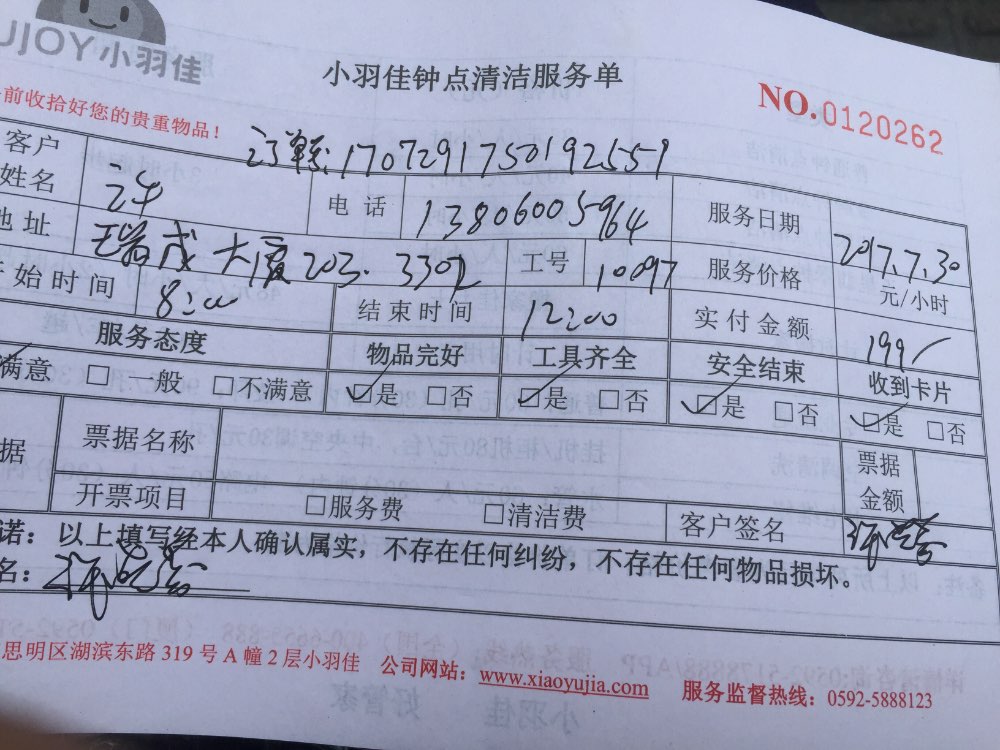 UJOY小羽佳
小羽佳钟点清洁服务单
NO.0120262
前收拾好您的贵重物品！
订单: 1707291750192559
客户
姓名
电话 13806005964 服务日期 2017.7.30
地址 大厦203.3302 工号 10097 服务价格 元/小时
始时间 8:00 结束时间 12:00 实付金额 199/
服务态度 物品完好 工具齐全 安全结束 收到卡片
满意 □一般 □不满意 ☑是 □否 ☑是 □否 ☑是 □否 ☑是 □否
据 票据名称 票据
金额
开票项目 □服务费 □清洁费 客户签名
诺：以上填写经本人确认属实，不存在任何纠纷，不存在任何物品损坏。
名：
思明区湖滨东路 319 号 A 幢 2 层小羽佳 公司网站：www.xiaoyujia.com 服务监督热线：0592-5888123